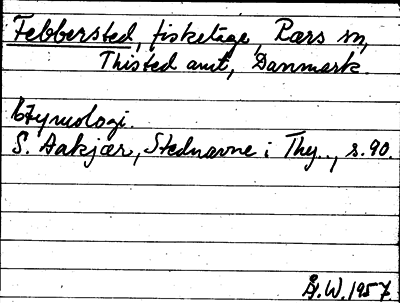 Febbersted, fisketige, Rærs sn,
Thisted amt, Danmark.
Etymologi.
S. Aakjær, Stednavne i Thy.., s.90.
Å.W. 1957